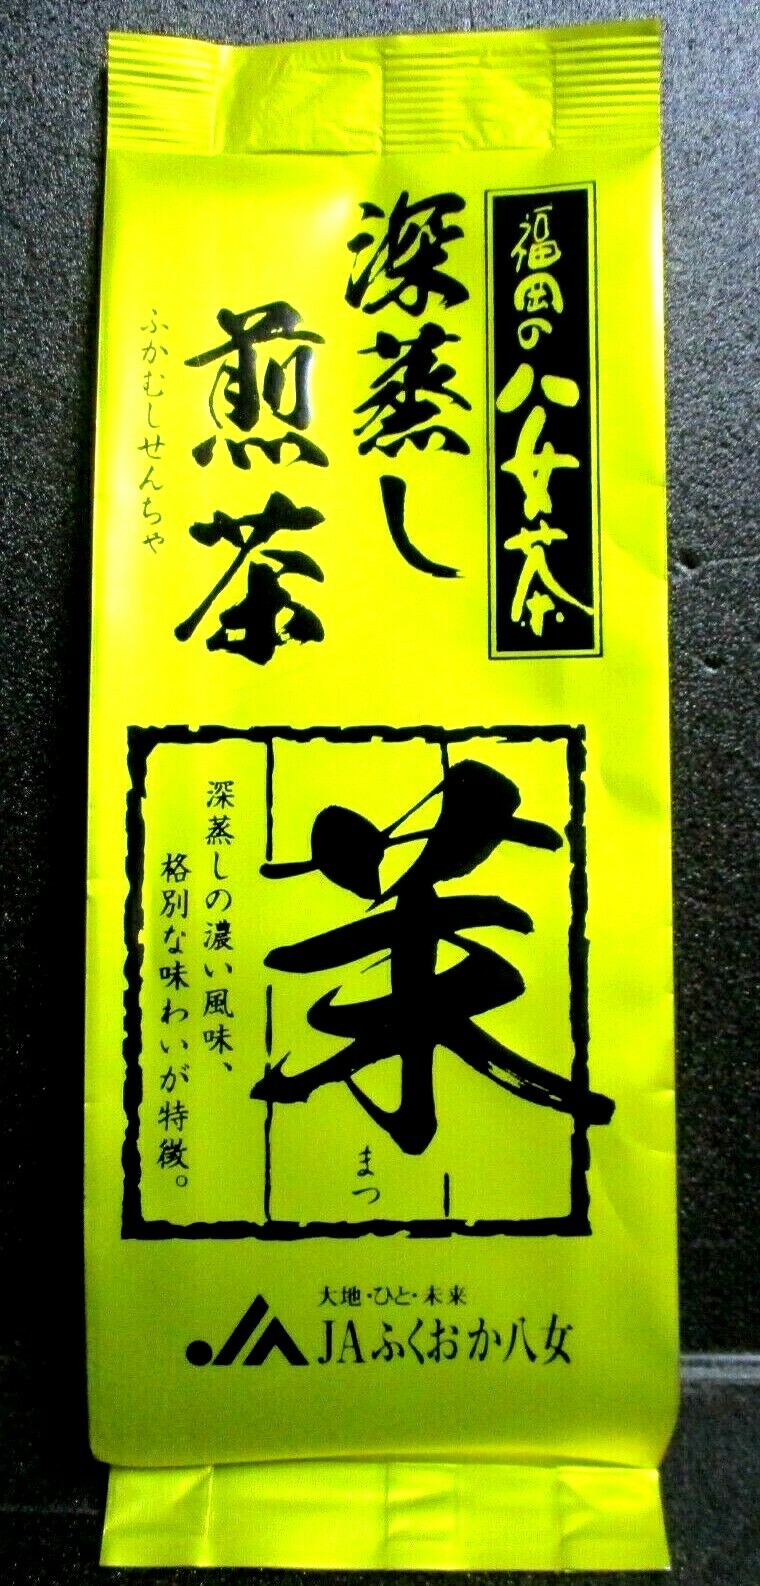 福岡の八女茶
深蒸し
煎茶
ふかむしせんちゃ
茉
まつ
深蒸しの濃い風味、
格別な味わいが特徴。
大地・ひと・未来
JAふくおか八女